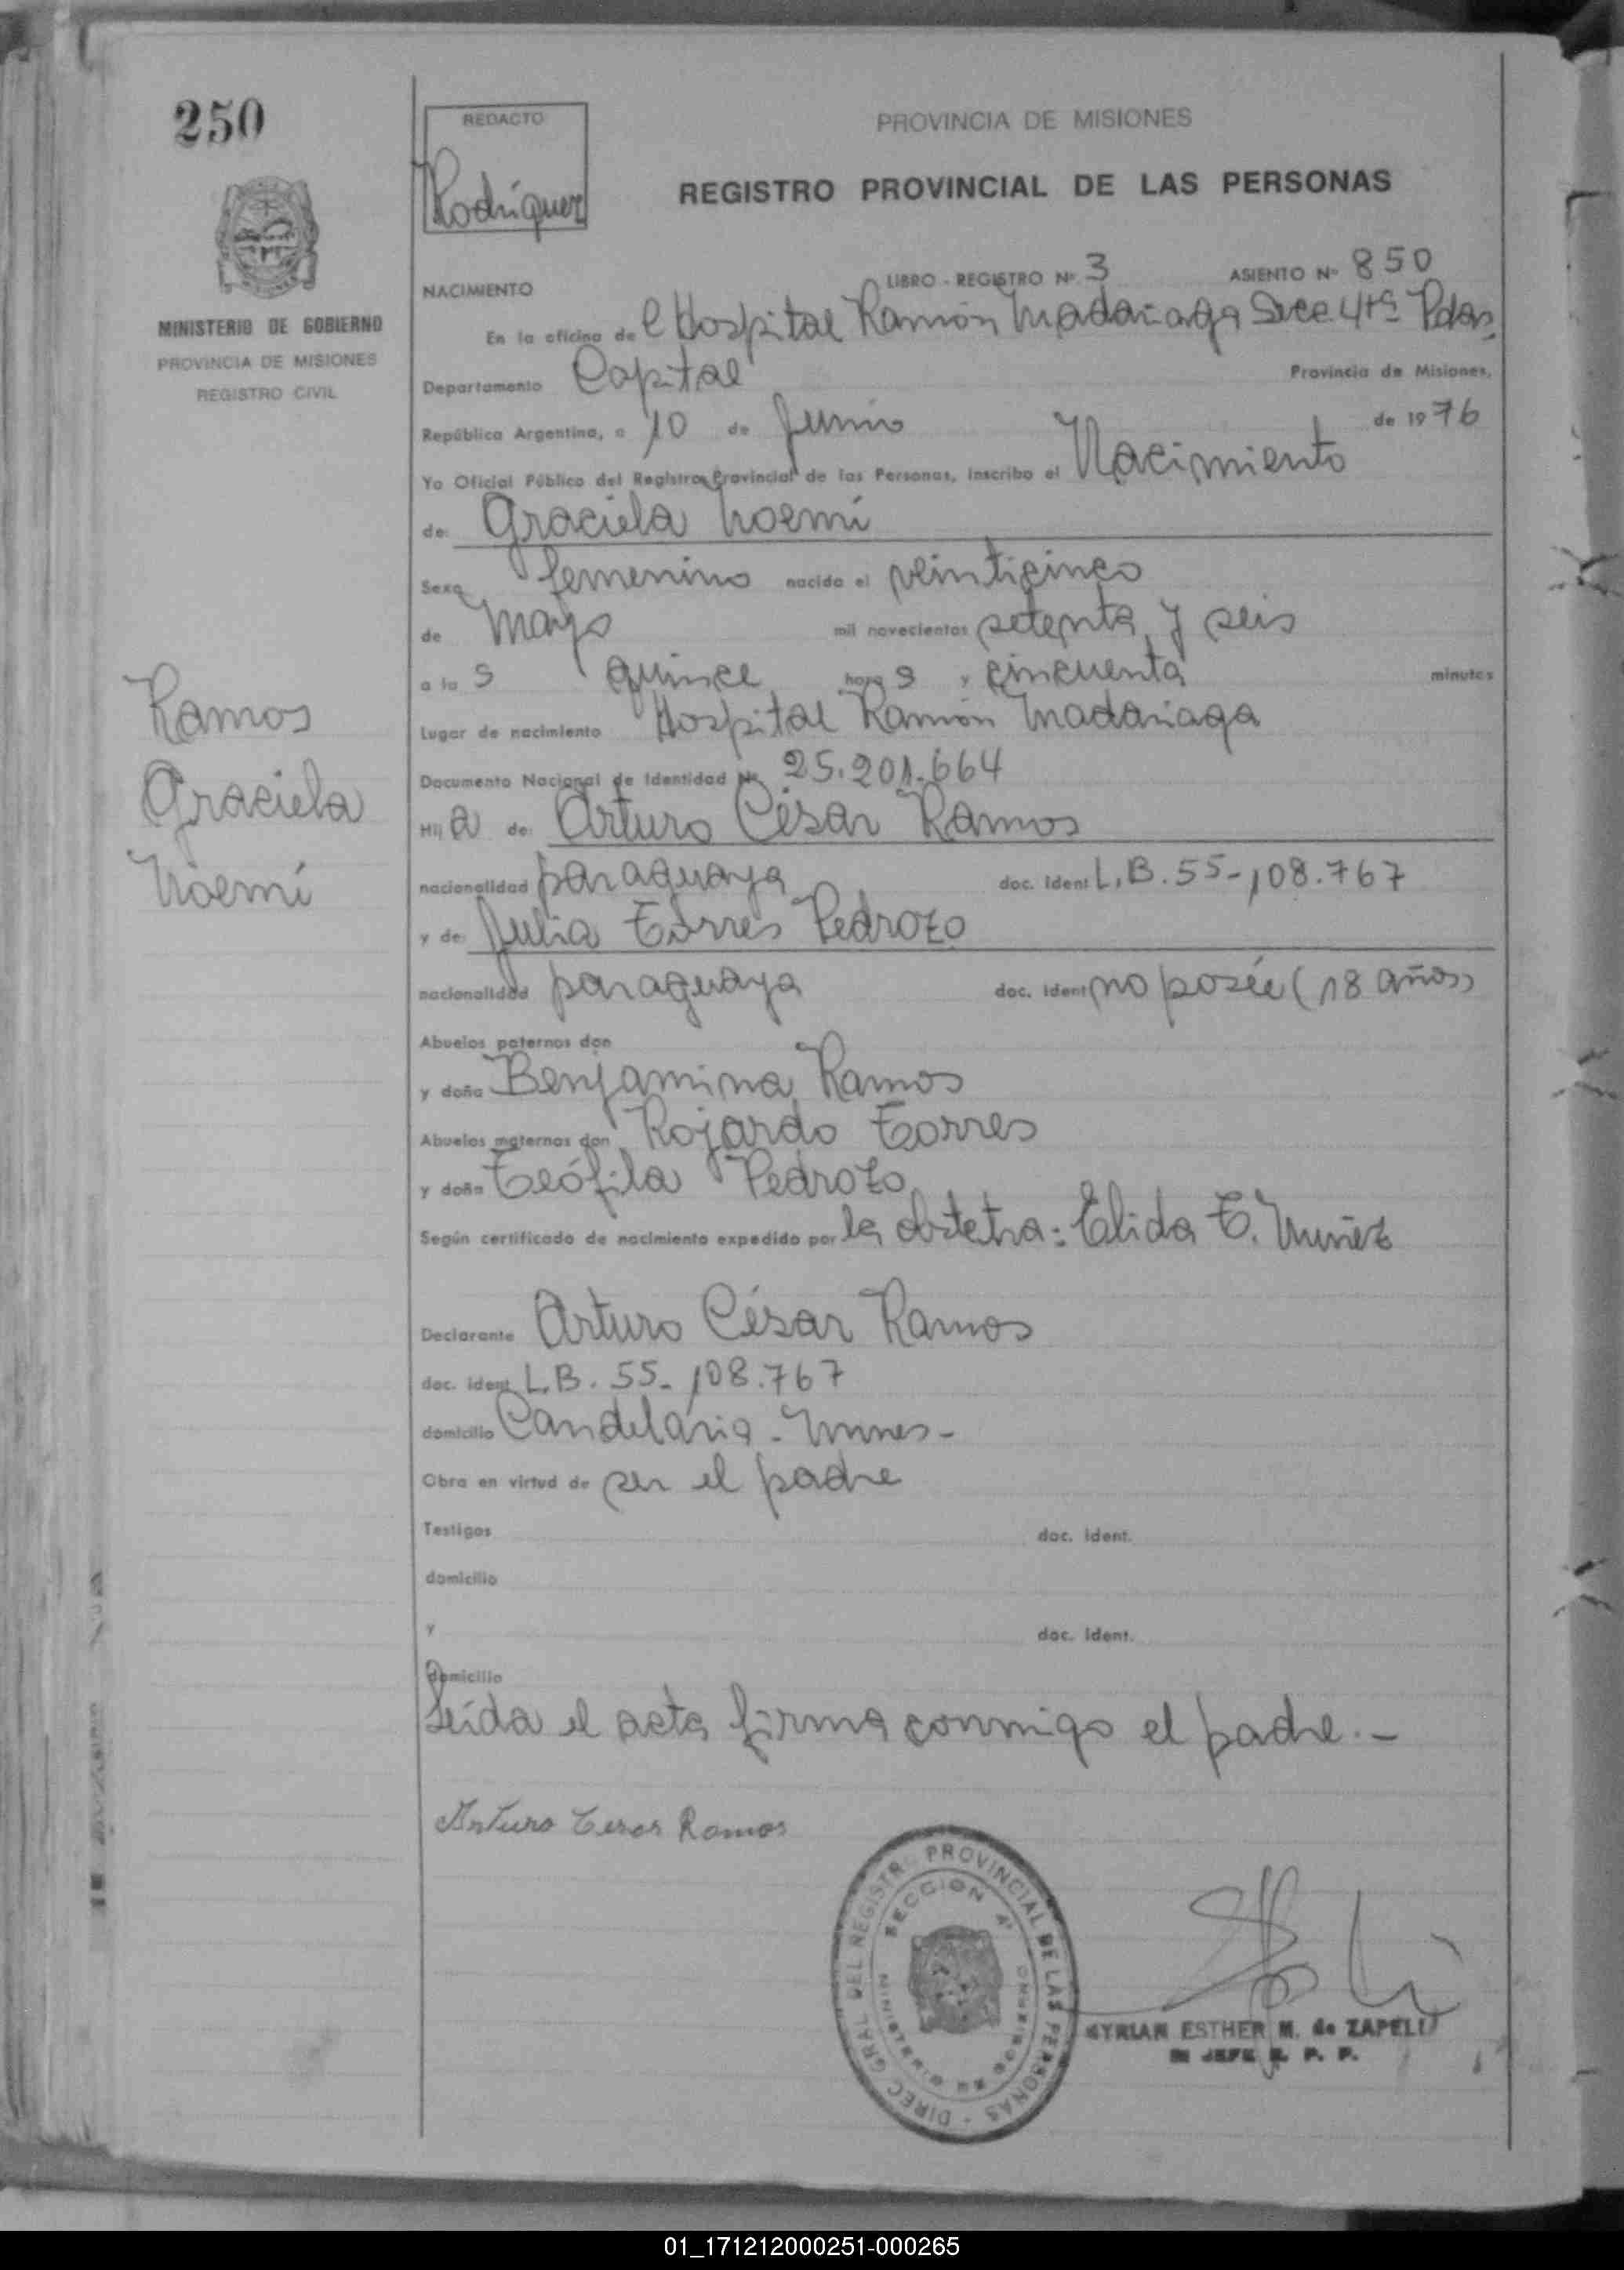 250
REDACTO
Rodríguez
PROVINCIA DE MISIONES
REGISTRO PROVINCIAL DE LAS PERSONAS
MINISTERIO DE GOBIERNO
PROVINCIA DE MISIONES
REGISTRO CIVIL
NACIMIENTO LIBRO - REGISTRO Nº 3 ASIENTO Nº 850
En la oficina del Hospital Ramón Madariaga Secc 4ta Pdas.
Departamento Capital Provincia de Misiones,
República Argentina, a 10 de Junio de 1976
Yo Oficial Público del Registro Provincial de las Personas, inscribo el Nacimiento
de: Graciela Noemí
Sexo femenino nacido el veinticinco
de Mayo mil novecientos setenta y seis
a las quince horas y cincuenta minutos
Lugar de nacimiento Hospital Ramón Madariaga
Documento Nacional de Identidad Nº 25.201.664
Hija de: Arturo César Ramos
nacionalidad paraguaya doc. ident L.B. 55-108.767
y de: Julia Torres Pedrozo
nacionalidad paraguaya doc. ident no posée (18 años)
Abuelos paternos don
y doña Benjamina Ramos
Abuelos maternos don Rojardo Torres
y doña Teófila Pedrozo
Según certificado de nacimiento expedido por la obstetra: Elida T. Nuñez
Declarante Arturo César Ramos
doc. ident. L.B. 55-108.767
domicilio Candelaria - Mnes-
Obra en virtud de ser el padre
Testigos doc. ident.
domicilio
y doc. ident.
domicilio
Leída el acta firma conmigo el padre.-
Ramos
Graciela
Noemí
Arturo Cesar Ramos
DIREC. GRAL DEL REGISTRO PROVINCIAL DE LAS PERSONAS
SECCION 4ª
MINISTERIO DE GOBIERNO
MYRIAN ESTHER M. de ZAPELLI
JEFE R. P. P.
01_171212000251-000265